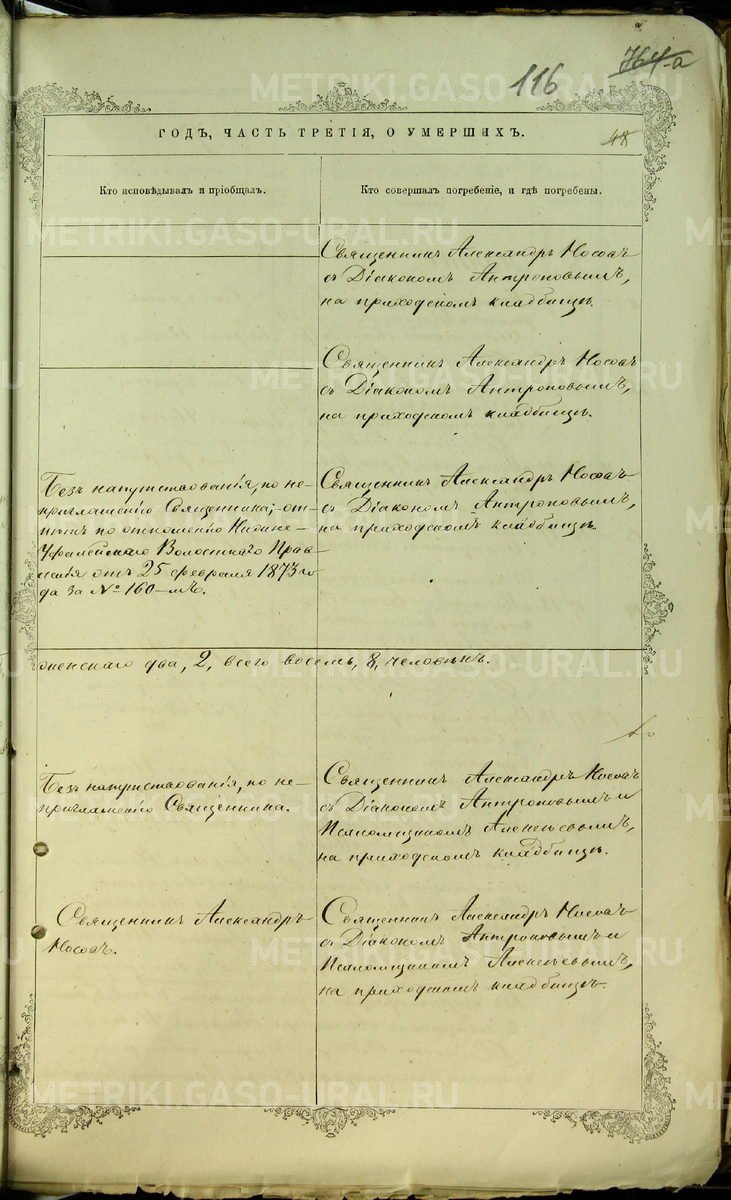 764-а
116
48
ГОДЪ, ЧАСТЬ ТРЕТІЯ, О УМЕРШИХЪ.
Кто исповѣдывалъ и пріобщалъ.
Кто совершалъ погребеніе, и гдѣ погребены.
Священникъ Александръ Носовъ
съ Діакономъ Антроповымъ,
на приходскомъ кладбищѣ.
Священникъ Александръ Носовъ
съ Діакономъ Антроповымъ,
на приходскомъ кладбищѣ.
Безъ напутствованія, по не-
приглашенію Священника; от-
пѣтъ по отношенію Нижне-
Уфалейскаго Волостнаго Прав-
ленія отъ 25 февраля 1873 го
да за № 160-мъ.
Священникъ Александръ Носовъ
съ Діакономъ Антроповымъ,
на приходскомъ кладбищѣ.
женскаго два, 2, всего восемь, 8, человѣкъ.
Безъ напутствованія, по не-
приглашенію Священника.
Священникъ Александръ Носовъ
съ Діакономъ Антроповымъ и
Псаломщикомъ Алексѣевымъ,
на приходскомъ кладбищѣ.
Священникъ Александръ
Носовъ.
Священникъ Александръ Носовъ
съ Діакономъ Антроповымъ и
Псаломщикомъ Алексѣевымъ,
на приходскомъ кладбищѣ.
METRIKI.GASO-URAL.RU